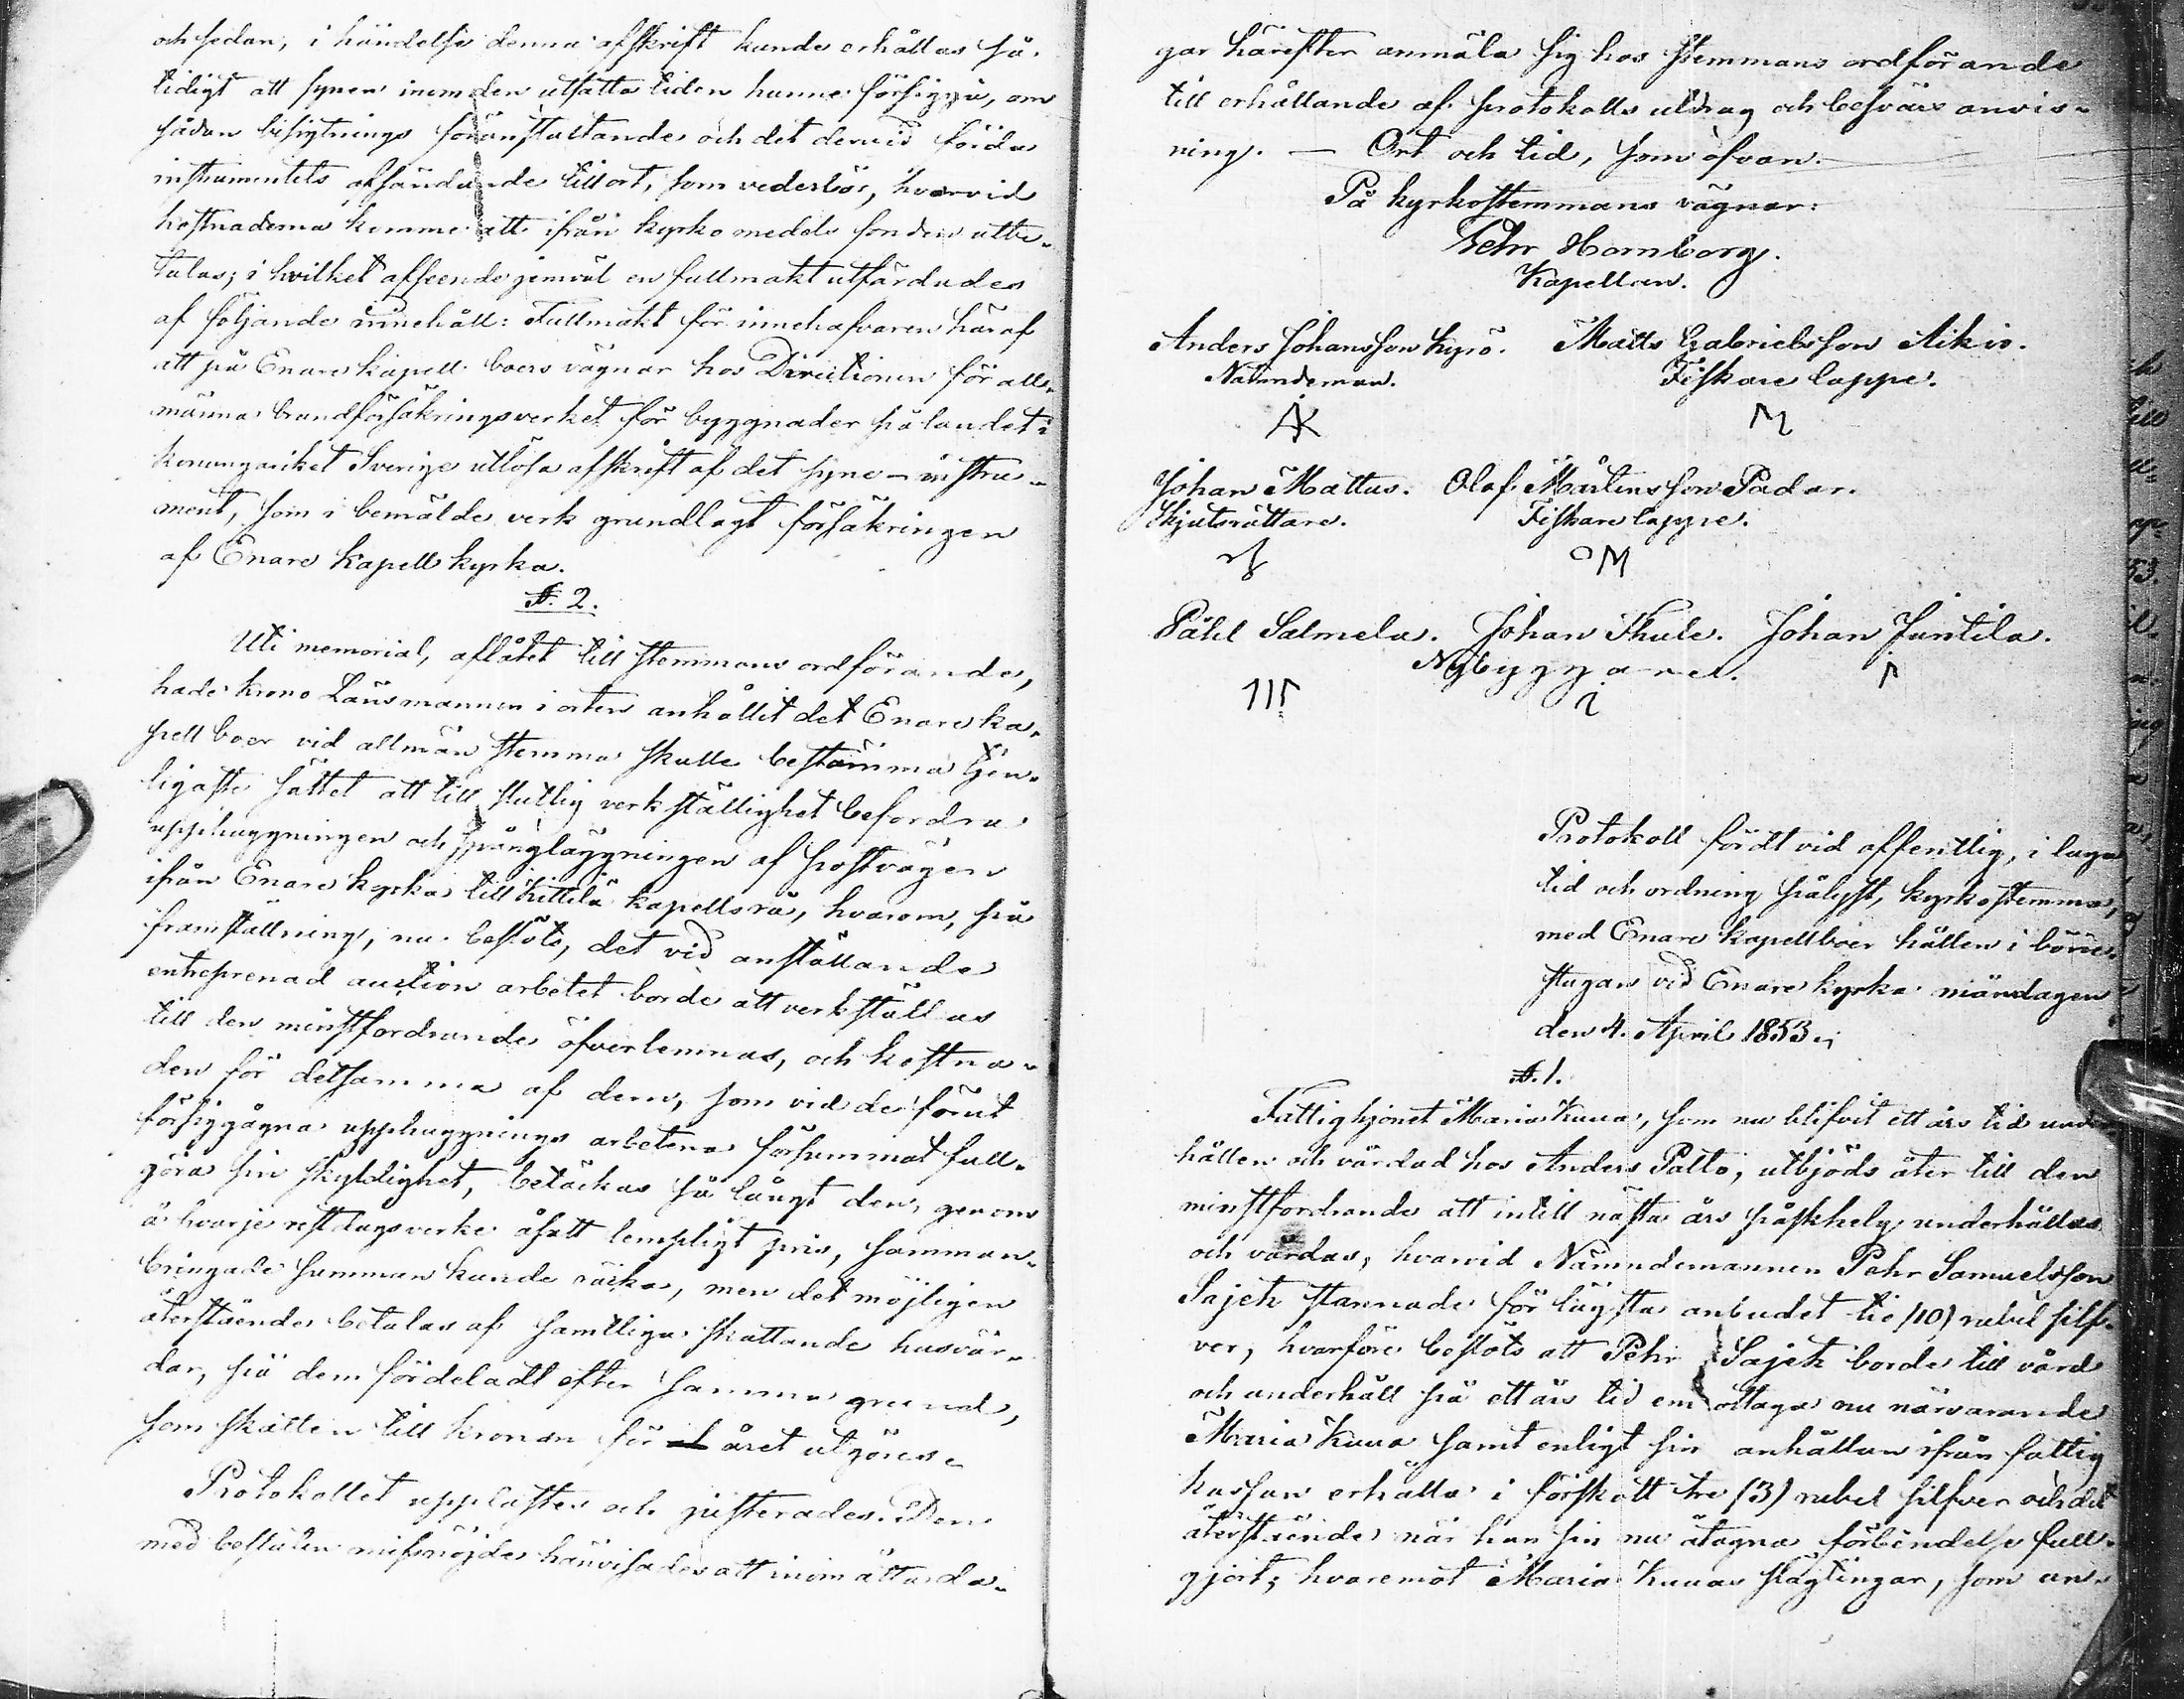 och sedan, i händelse denna afskrift kunde erhållas så
tidigt att synen inom den utsatta tiden hunne försiggå, om
sådan besigtnings föranstaltande och det dervid förda
instrumentets afsändande till ort, som vederbör, hvarvid
kostnaderna komme att ifrån kyrko medels fonden utbe-
talas; i hvilket afseende jemväl en fullmakt utfärdades
af följande innehåll: Fullmakt för innehafvaren häraf
att på Enare kapell boers vägnar hos Directionen för all-
männa brandförsäkringsverket för byggnader på landet i
konungariket Sverige utlösa afskrift af det syne-instru-
ment, som i bemälde verk grundlagt försäkringen
af Enare Kapell kyrka.
§. 2.
Uti memorial, aflåtet till stemmans ordförande,
hade krono Länsmannen i orten anhållit det Enare ka-
pell boer vid allmän stemma skulle bestämma tjen-
ligaste sättet att till slutlig verkställighet befordra
upphuggningen och spångläggningen af postvägen
ifrån Enare kyrka till Kittilä kapellsrå, hvarom, på
framställning, nu beslöts, det vid anställande
entreprenad auction arbetet borde att verkställas
till den minstfordrande öfverlemnas, och kostna-
den för detsamma af dem, som vid de förut
försiggågna upphuggnings arbetena försummat full-
göra sin skyldighet, betäckas så långt den, genom
å hvarje restdagsverke åsatt lempligt pris, samman-
bringade summan kunde räcka, men det möjligen
återstående betalas af samtliga skattande husvär-
dar, på dem fördeladt efter samma grund,
som skatten till kronan för året utgöres.
Protokollet upplästes och justerades. Den
med besluten missnöjde hänvisades att inom åtta da-
gar härefter anmäla sig hos stemmans ordförande
till erhållande af protokolls utdrag och besvärs anvis-
ning. — Ort och tid, som ofvan.
På kyrkostemmans vägnar:
Pehr Hornborg.
Kapellan.
Anders Johansson Kyrö. Matts Gabrielsson Aikio.
Nämndeman. Fiskare lappe.
Johan Mattus. Olof Mårtensson Padar.
Skjutsrättare. Fiskare lappe.
Påhl Salmela. Johan Thule. Johan Juntila.
Nybyggare.
Protokoll fördt vid offentlig, i laga
tid och ordning pålyst, kyrkostemma,
med Enare kapellboer hållen i böne-
stugan vid Enare kyrka måndagen
den 4. April 1853.
§. 1.
Fattighjonet Maria Kuua, som nu blifvit ett års tid under-
hållen och vårdad hos Anders Palto, utbjöds åter till den
minstfordrande att intill nästa års påskhelg underhållas
och vårdas, hvarvid Nämndemannen Pehr Samuelsson
Sajets stannade för lägsta anbudet tio (10) rubel silf-
ver, hvarföre beslöts att Pehr Sajets borde till vård
och underhåll på ett års tid emottaga nu närvarande
Maria Kuua samt enligt sin anhållan ifrån fattig
kassan erhålla i förskott tre (3) rubel silfver och det
återstående när han sin nu åtagna förbindelse full-
gjort; hvaremot Maria Kuuas slägtingar, som un-